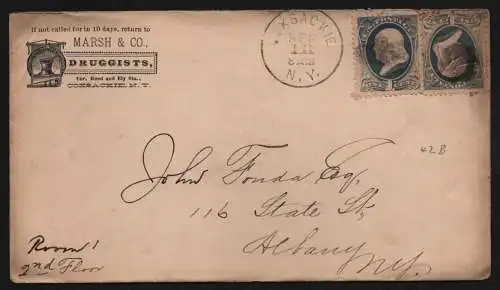 If not called for in 10 days, return to
MARSH & CO.,
DRUGGISTS,
Cor. Reed and Ely Sts.,
COXSACKIE, N.Y.
COXSACKIE
N.Y.
42B
John Fonda Esq,
116 State St,
Albany
N.Y.
Room 1
2nd Floor